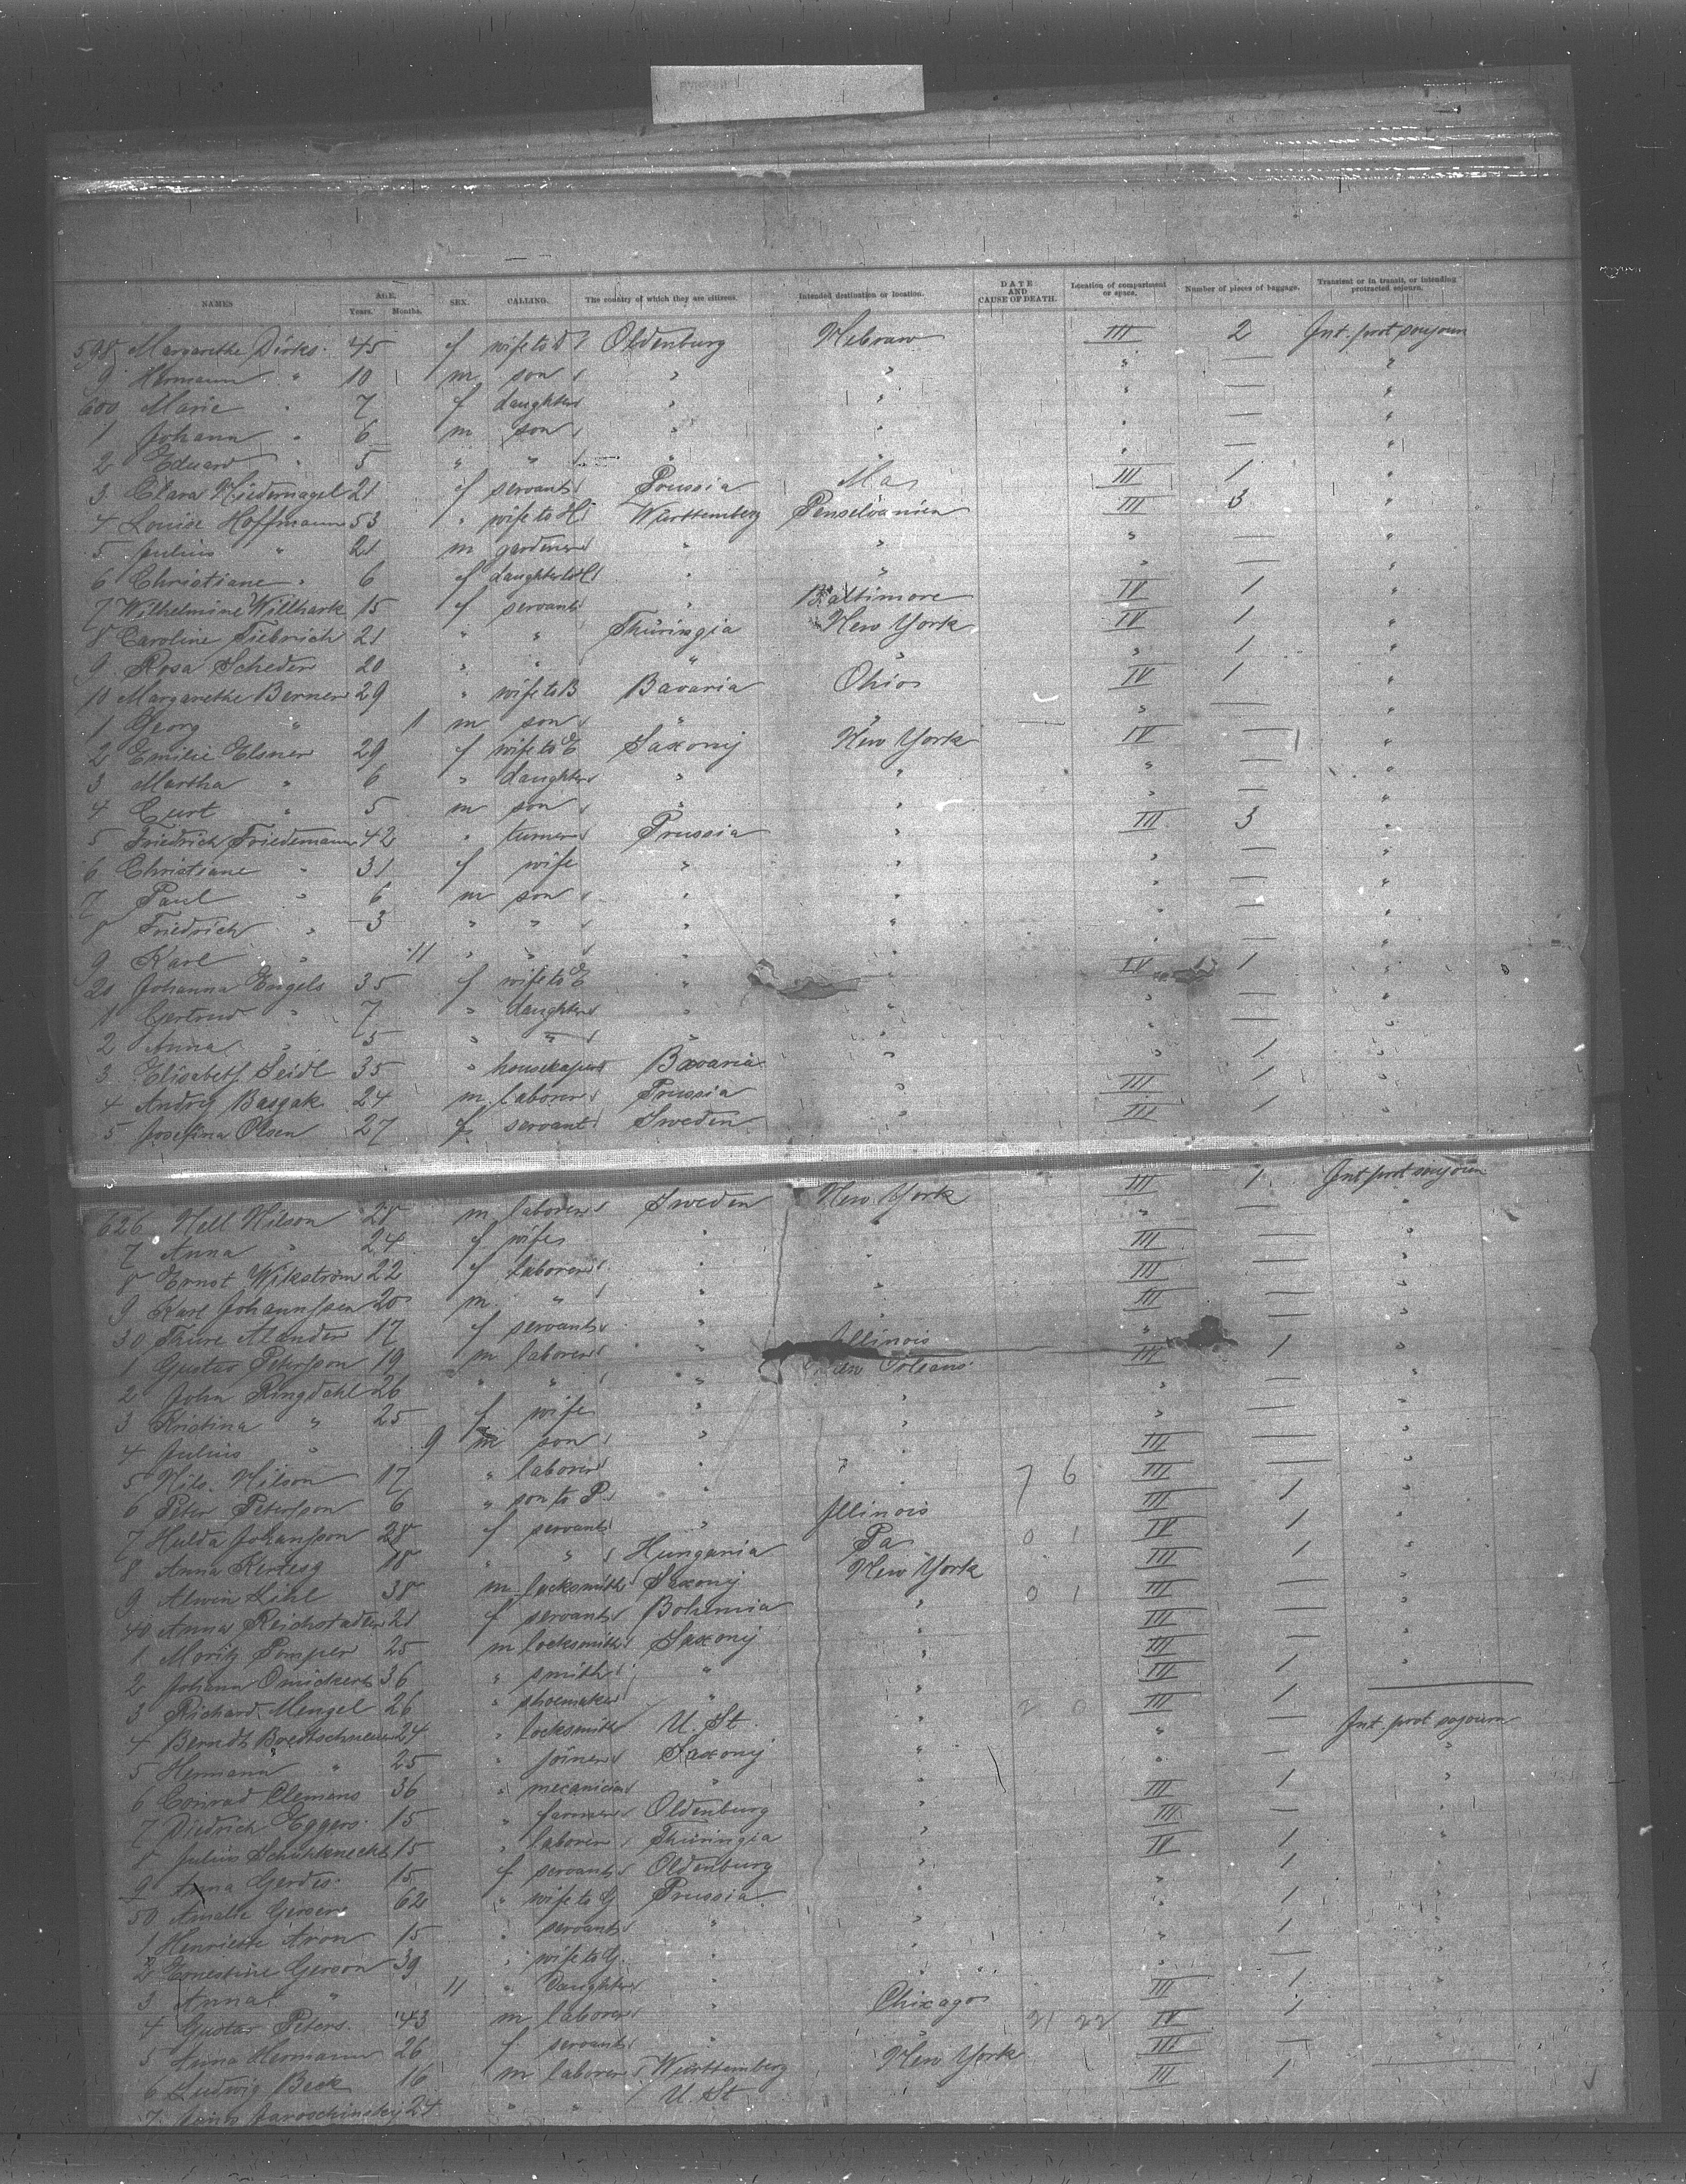 NAMES AGE. Years. Months. SEX. CALLING. The country of which they are citizens. Intended destination or location. DATE AND CAUSE OF DEATH. Location of compartment or space. Number of pieces of baggage. Transient or in transit, or intending protracted sojourn.
598 Margarethe Dirks 45 f wife to D Oldenburg III 2 Int. prot sojourn
9 Hermann " 10 m son " " " — "
600 Marie " 7 f daughter " " " — "
1 Johann " 6 m son " " " — "
2 Eduard " 5 " " " " " — "
3 Clara Niedernagel 21 f servant Prussia Ma III 1 "
4 Louise Hoffmann 53 " wife to H Württemberg Penselvanien III 3 "
5 Julius " 21 m gardener " " " "
6 Christiane " 6 f daughter to H " " " "
7 Wilhelmine Willhark 15 f servant " Baltimore IV 1 "
8 Caroline Fiebrich 21 " " Thüringia New York IV "
9 Rosa Scheder 20 " " " " " 1 "
10 Margarethe Berner 29 " wife to B Bavaria Ohio IV 1 "
1 Georg " 1 m son " " " — "
2 Emilie Elsner 29 f wife to E Saxony New York IV — "
3 Martha " 6 " daughter " " " — "
4 Curt " 5 m son " " " — "
5 Friedrich Friedemann 42 " turner Prussia " III 3 "
6 Christiane " 31 f wife " " " — "
7 Paul " 6 m son " " " — "
8 Friedrich " 3 " " " " " — "
9 Karl " 11 " " " " — "
20 Johanna Engels 35 f wife to E " " IV 1 "
1 Gertrud " 7 " daughter " " " — "
2 Anna " 5 " " " " " — "
3 Elisabeth Seidl 35 " Bavaria " " 1 "
4 Andrej Basgak 24 m laborer Prussia " III 1 "
5 Josefina Olsen 27 f servant Sweden " III 1 "
626 Nell Nilson 28 m laborer Sweden New York III 1 Int prot sojourn
7 Anna " 24 f wife " " " — "
8 Ernst Wikström 22 f laborer " " III — "
9 Karl Johannsson 20 m " " " III —
30 Thure Alander 17 f servant " " III — "
1 Gustav Petersson 19 m laborer " Illinois " — "
2 John Ringdahl 26 " " " Orleans III 1
3 Kristina " 25 f wife " " " — "
4 Julius " 9 m son " " " — "
5 Nils Nilson 17 " laborer " " III — "
6 Peter Petersson 6 " son to P. " " 7 6 III — "
7 Hulda Johansson 28 f servant " Illinois III 1 "
8 Anna Kertesg 18 " " Hungaria Pa 0 1 IV 1 "
9 Alwin Lihl 38 m locksmith Saxony New York III 1 "
40 Anna Reichstadler 21 f servant Bohemia " 0 1 III — "
1 Moritz Pomper 25 m locksmith Saxony " III — "
2 Johann 36 " smith " " III — "
3 Richard Mengel 26 " shoemaker " " III 1
4 Berndt 24 " locksmith U. St. " 2 0 III 1
5 Hermann " 25 " joiner Saxony " " — Int. prot sojourn
6 Conrad Clemens 36 " mecanician " " " — "
7 Diedrich Eggers 15 " farmer Oldenburg " III 1 "
8 Julius Schuhknecht 15 " laborer Thüringia " III —
9 Anna Gerdes 15 f servant Oldenburg " IV 1 "
50 Amalie Gerson 62 " wife to G Prussia " " 1
1 Henriette Aron 15 " servant " " " 1 "
2 Ernestine Gerson 39 " wife to G. " " " 1 "
3 Anna " 11 " daughter " " —
4 Gustav Peters 43 m laborer " Chicago III 1 "
5 Anna Hermann 26 f servant " " 21 22 IV 1
6 Ludwig Beck 16 m laborer Württemberg New York III — "
7 Jaroschinskij 24 " " U. St III 1